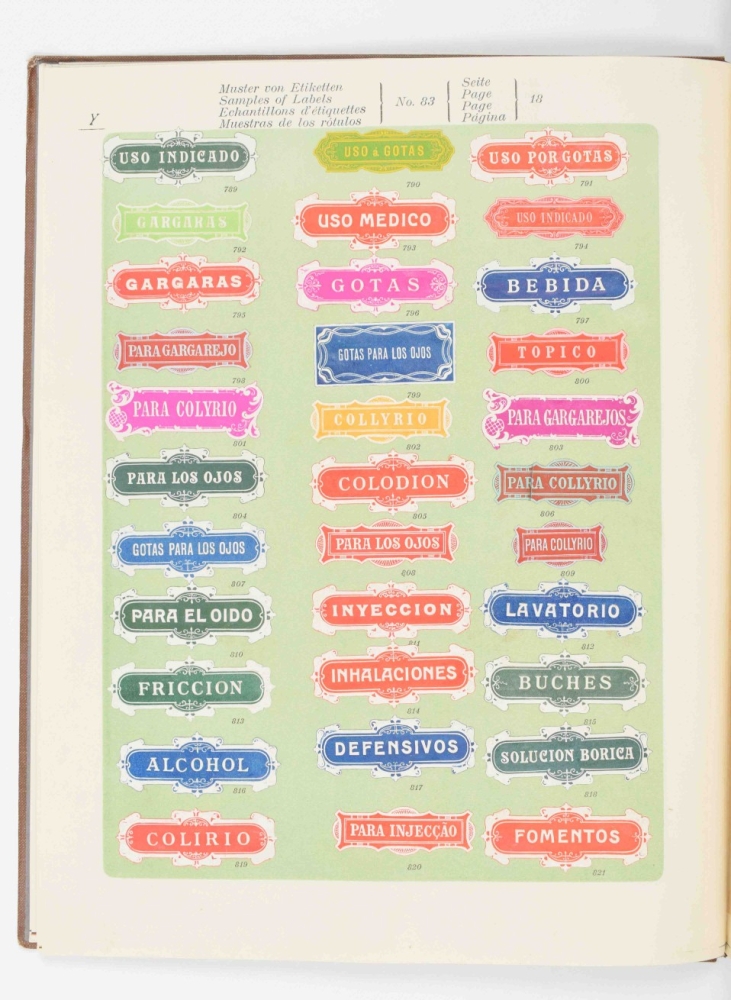 Y
Muster von Etiketten
Samples of Labels
Echantillons d'étiquettes
Muestras de los rótulos
No. 83
Seite
Page
Page
Página
18
USO INDICADO
789
USO á GOTAS
790
USO POR GOTAS
791
GARGARAS
792
USO MEDICO
793
USO INDICADO
794
GARGARAS
795
GOTAS
796
BEBIDA
797
PARA GARGAREJO
798
GOTAS PARA LOS OJOS
799
TOPICO
800
PARA COLYRIO
801
COLLYRIO
802
PARA GARGAREJOS
803
PARA LOS OJOS
804
COLODION
805
PARA COLLYRIO
806
GOTAS PARA LOS OJOS
807
PARA LOS OJOS
808
PARA COLLYRIO
809
PARA EL OIDO
810
INYECCION
811
LAVATORIO
812
FRICCION
813
INHALACIONES
814
BUCHES
815
ALCOHOL
816
DEFENSIVOS
817
SOLUCION BORICA
818
COLIRIO
819
PARA INJECÇÃO
820
FOMENTOS
821